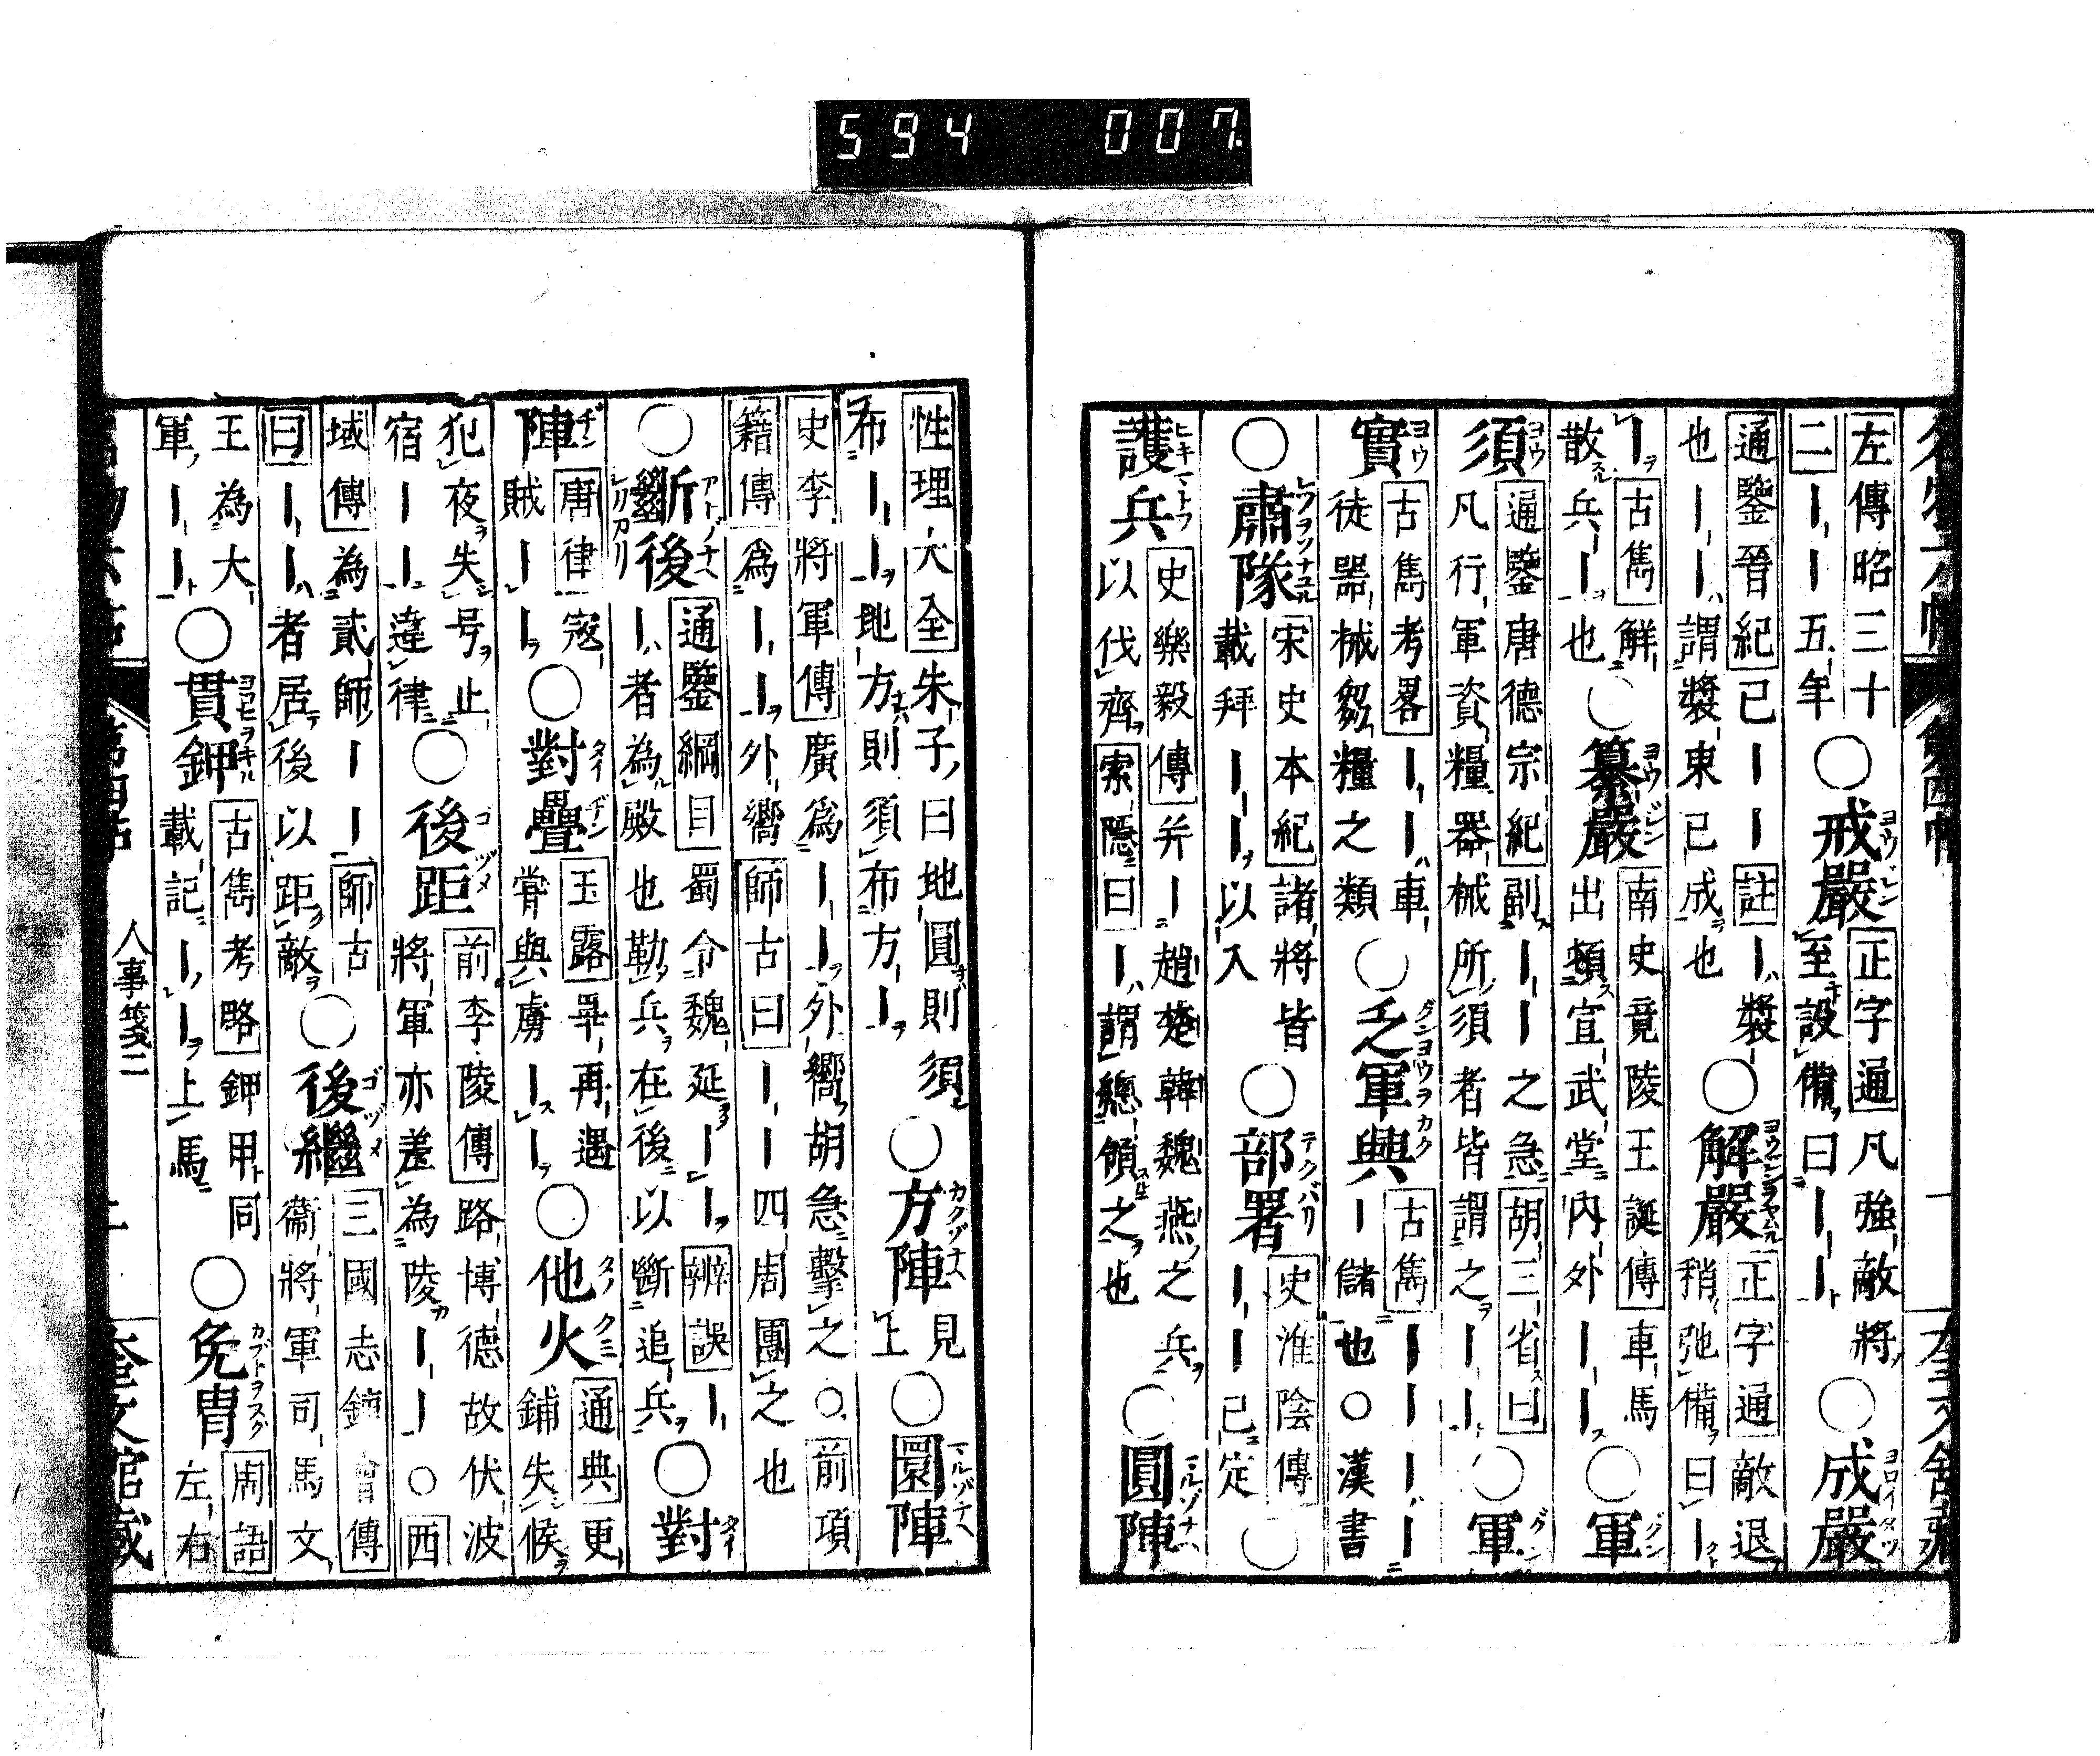 594 007
左傳昭三十
二ーー五年
○戒嚴
正字通凡強敵將
至設備曰ーー
○成嚴
通鑒晉紀已ーー註ー裝
也ーー謂裝束已成也
○解嚴
正字通敵退
稍弛備曰ー
ー古雋解
散兵ー也
○纂嚴
南史竟陵王誕傳車馬
出頓宣武堂內外ーー
○軍
須
通鑒唐德宗紀副ーー之急胡三省曰
凡行軍資糧器械所須者皆謂之ーー
○軍
實
古雋考畧ーー車
徒器械芻糧之類
○乏軍興
古雋ーーーー
ー儲也○漢書
○肅隊
宋史本紀諸將皆
載拜ーー以入
○部署
史淮陰傳
ーー已定
○
護兵
史樂毅傳并ー趙楚韓魏燕之兵
以伐齊索隱曰ー謂總領之也
○圓陣
性理大全朱子曰地圓則須
布ーー地方則須布方ー
○方陣
見
上
○圜陣
史李將軍傳廣為ーー外嚮胡急擊之○前項
籍傳為ーー外嚮師古曰ーー四周團之也
○斷後
通鑒綱目蜀令魏延ーー辨誤ー
ー者為殿也勒兵在後以斷追兵
○對
陣
唐律寇
賊ーー
○對壘
玉露畢再遇
嘗與虜ーー
○他火
通典更
鋪失候
犯夜失号止
宿ーー違律
○後距
前李陵傳路博德故伏波
將軍亦差為陵ーー○西
域傳為貳師ーー師古
曰ーー者居後以距敵
○後繼
三國志鍾會傳
衞將軍司馬文
王為大
軍ーー
○貫鉀
古雋考略鉀甲同
載記ーー上馬
○免冑
周語
左右
第四帖
人事箋二
二